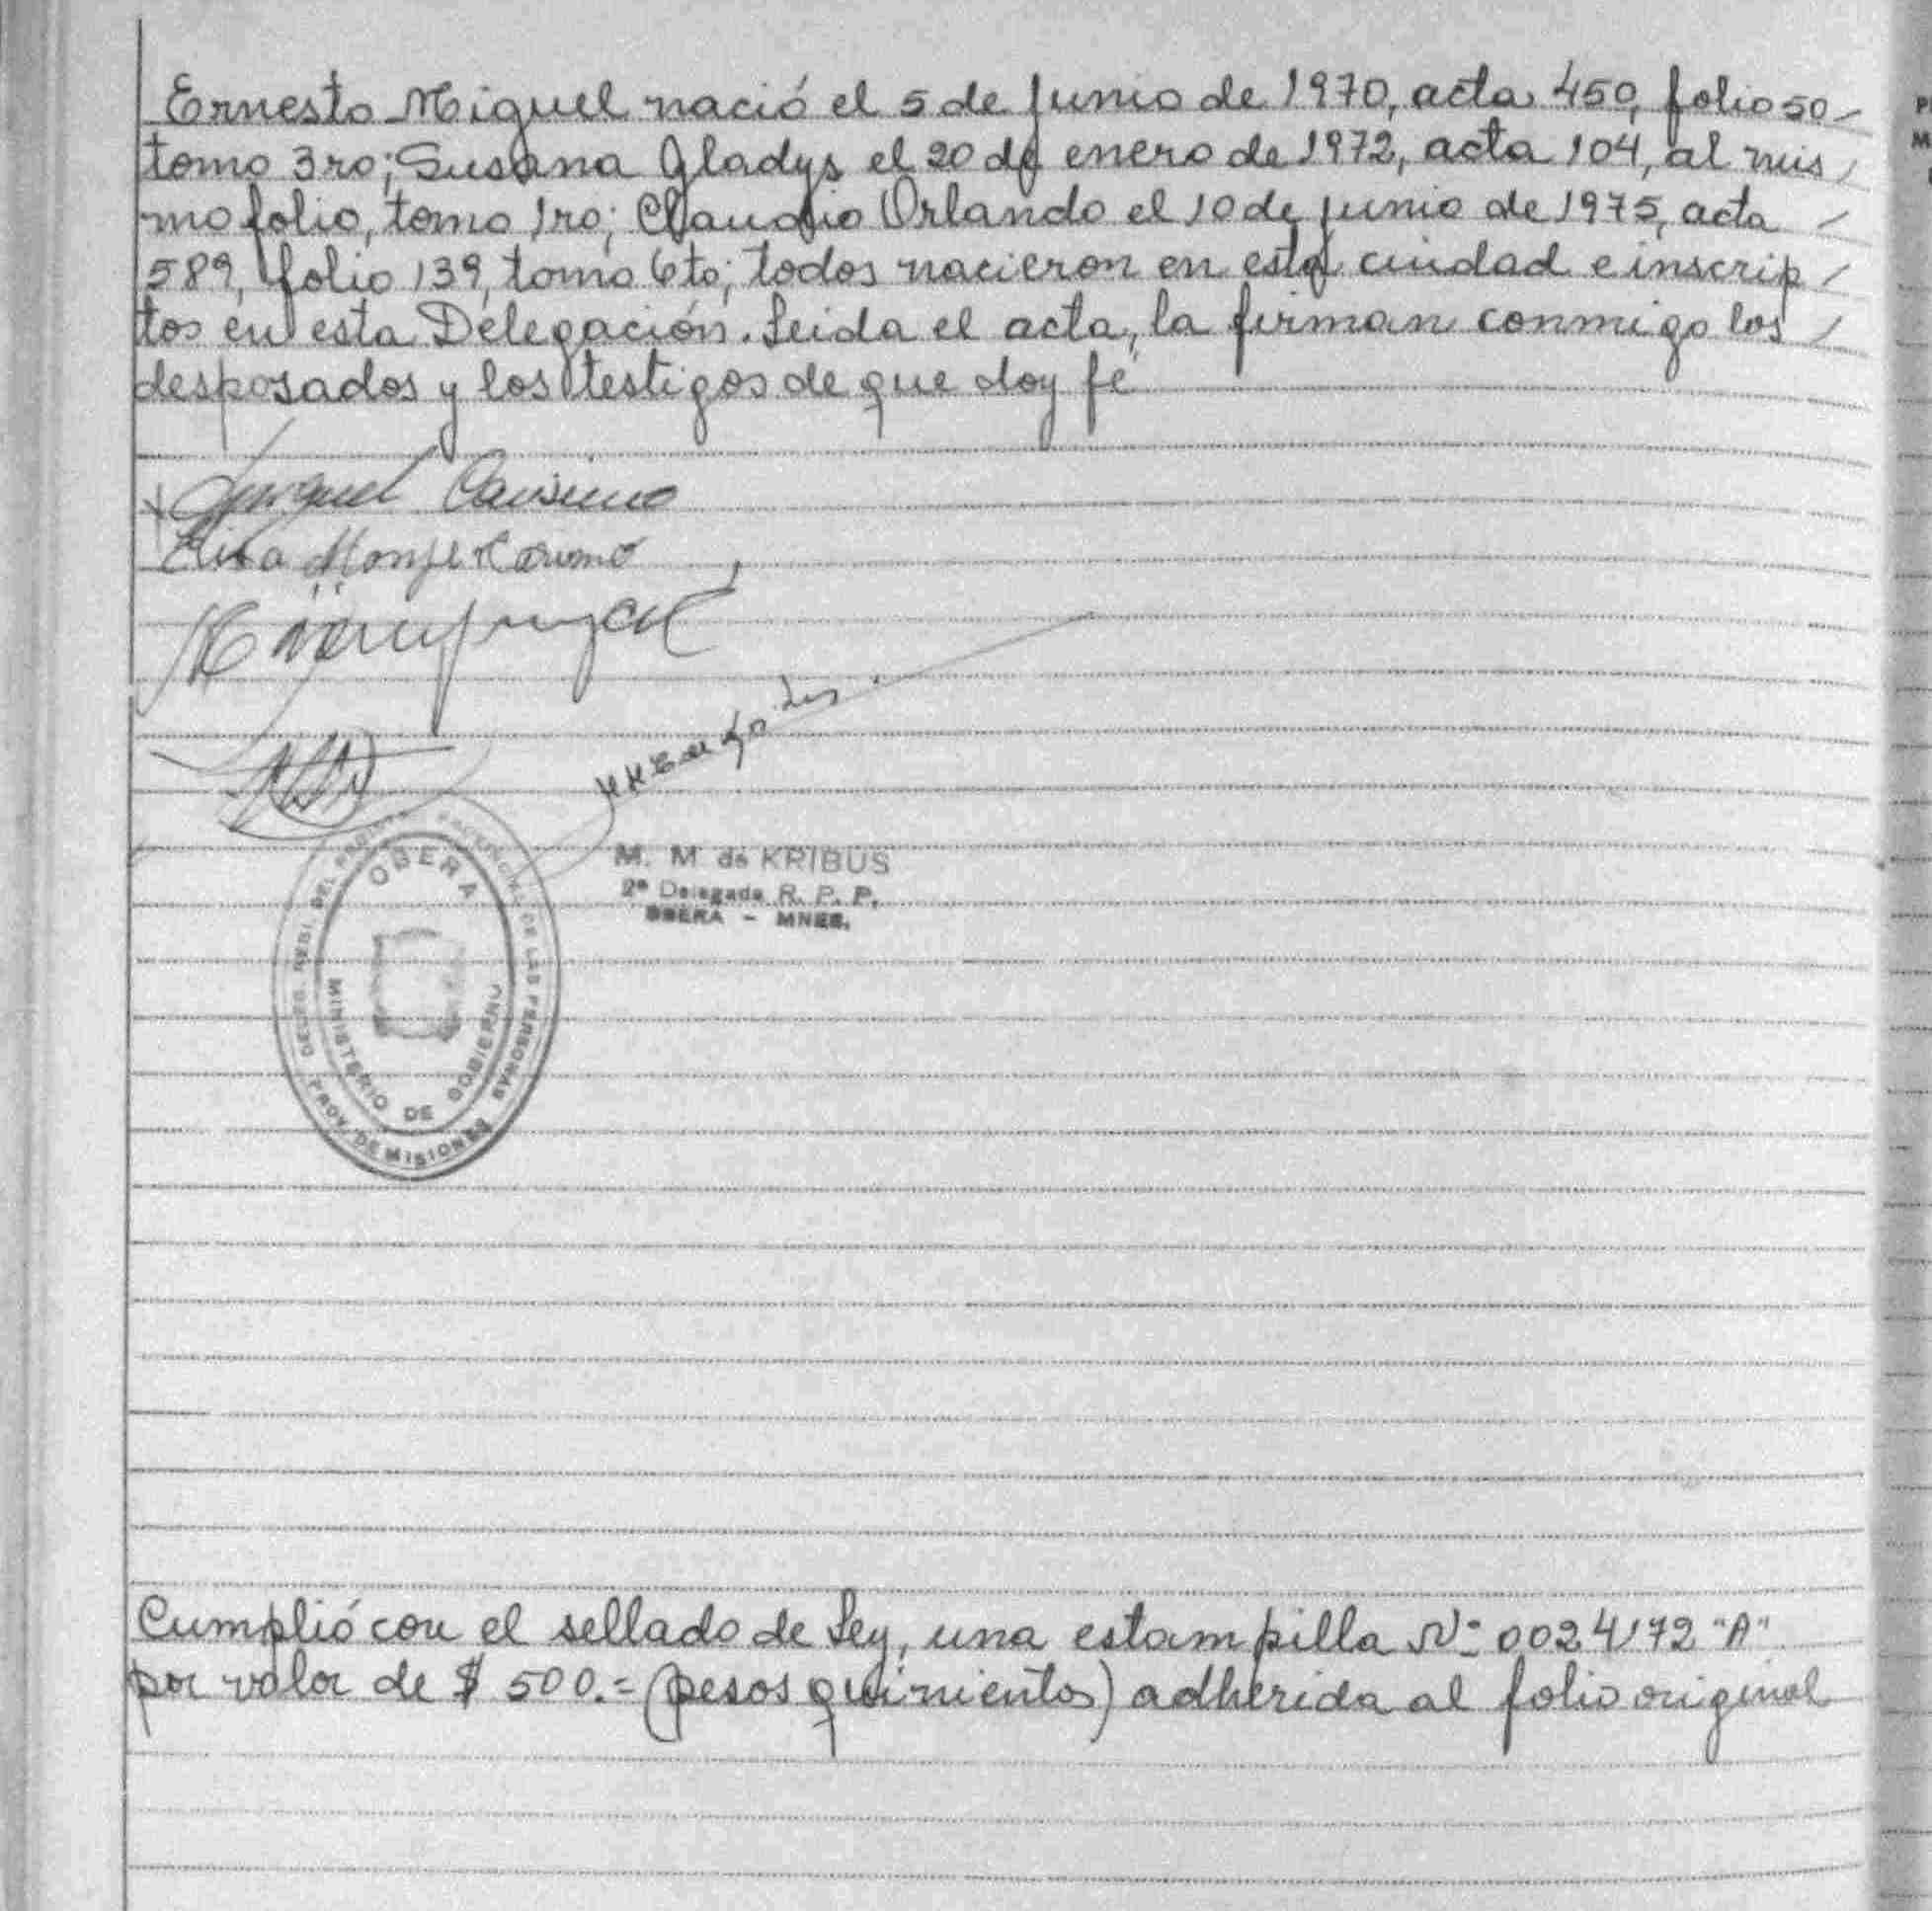 Ernesto Miguel nació el 5 de junio de 1970, acta 450, folio 50-
tomo 3ro; Susana Gladys el 20 de enero de 1972, acta 104, al mis/
mo folio, tomo 1ro; Claudio Orlando el 10 de junio de 1975, acta /
589, folio 139, tomo 6to; todos nacieron en esta ciudad e inscrip/
tos en esta Delegación. Leida el acta, la firman conmigo los /
desposados y los testigos de que doy fé
Elisa
M. M de KRIBUS
2ª Delegada R. P. P.
OBERA - MNES.
OBERA
MINISTERIO DE GOBIERNO
PROV. DE MISIONES
DE LAS PERSONAS
Cumplió con el sellado de Ley, una estampilla Nº 0024172 "A"
por valor de $ 500.= (pesos quinientos) adherida al folio original